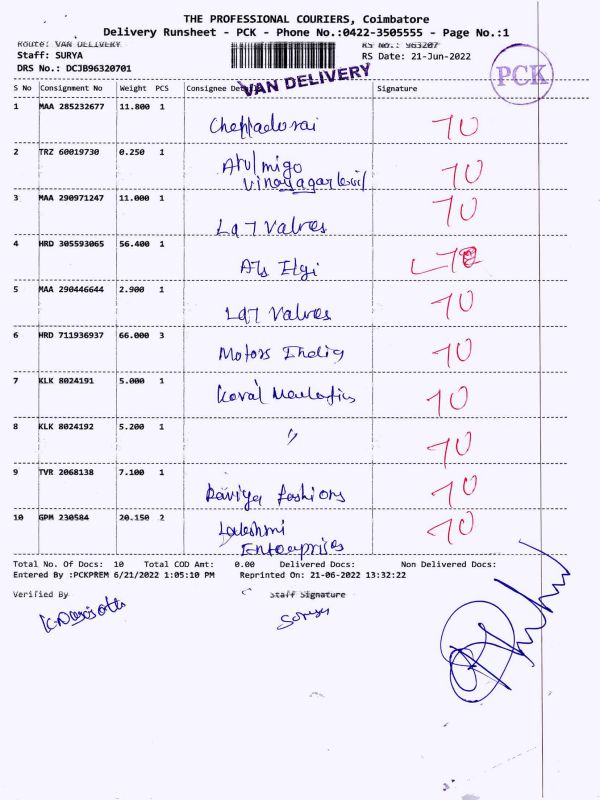 THE PROFESSIONAL COURIERS, Coimbatore
Delivery Runsheet - PCK - Phone No.:0422-3505555 - Page No.:1
Route: VAN DELIVERY
RS No.: 963207
Staff: SURYA
RS Date: 21-Jun-2022
DRS No.: DCJB96320701
VAN DELIVERY
PCK
S No Consignment No Weight PCS Consignee Signature
1 MAA 285232677 11.800 1
70
2 TRZ 60019730 0.250 1
70
3 MAA 290971247 11.000 1
70
La7 Valves
4 HRD 305593065 56.400 1
Elgi
5 MAA 290446644 2.900 1
70
La7 Valves
6 HRD 711936937 66.000 3
Motors India 70
7 KLK 8024191 5.000 1
70
8 KLK 8024192 5.200 1
〃 70
9 TVR 2068138 7.100 1
70
Fashions
10 GPM 230584 20.150 2
Lakshmi 70
Enterprises
Total No. Of Docs: 10 Total COD Amt: 0.00 Delivered Docs: Non Delivered Docs:
Entered By :PCKPREM 6/21/2022 1:05:10 PM Reprinted On: 21-06-2022 13:32:22
Verified By Staff Signature